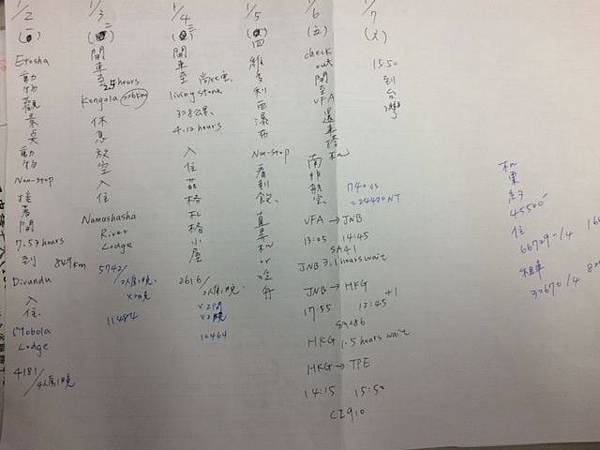 1/2
(一)
Etosha
動
物
觀
景
桌
動
物
Non-stop
接
著
開
7.53 hours
到 849 km
Divundu
入
住
Mobola
Lodge
4181/
4人房1晚
1/3
(二)
開
車
至 2.5 hours
Kongola 206km
休
息
放
空
入
住
Namushasha
River
Lodge
5742/
2人房1晚
×2間
11484
1/4
(三)
開
車
至
living stone
328公里
4.12 hours
入
住
茲
格
札
格
小
屋
2616/
2人房1晚
×2間
×2晚
10464
1/5
(四)
維
多
利
亞
瀑
布
Non-stop
看
到
飽
直
升
機
or
吃
1/6
(五)
check
out
開
至
VFA
還
車
搭
機
南
非
航
空
1740 US
=24420 NT
VFA → JNB
13:05 14:45
SA41
JNB 3.1 hours wait
JNB → HKG
17:55 12:45 +1
SA286
HKG 1.5 hours wait
HKG → TPE
14:15 15:50
CI910
1/7
(六)
15:50
到
台
灣
機
票
45500
住
66729÷/4
租車
32670/4